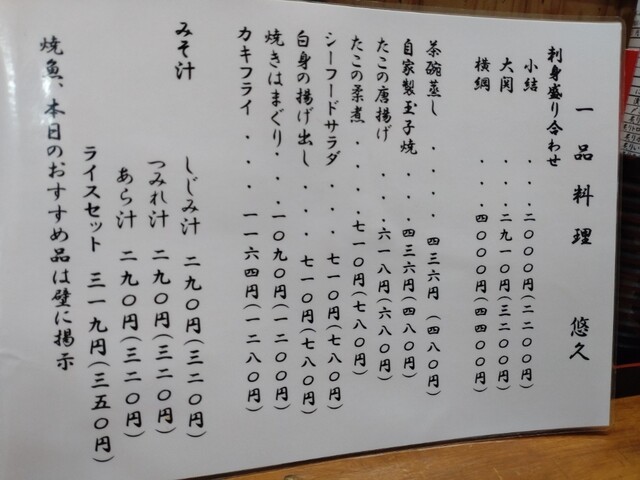 一品料理　悠久
刺身盛り合わせ
小結・・・二〇〇〇円(二二〇〇円)
大関・・・二九一〇円(三二〇〇円)
横綱・・・四〇〇〇円(四四〇〇円)
茶碗蒸し・・・・四三六円(四八〇円)
自家製玉子焼・・・四三六円(四八〇円)
たこの唐揚げ・・・六一八円(六八〇円)
たこの柔煮・・・・七一〇円(七八〇円)
シーフードサラダ・・・七一〇円(七八〇円)
白身の揚げ出し・・・七一〇円(七八〇円)
焼きはまぐり・・・一〇九〇円(一二〇〇円)
カキフライ・・・・一一六四円(一二八〇円)
みそ汁
しじみ汁 二九〇円(三二〇円)
つみれ汁 二九〇円(三二〇円)
あら汁 二九〇円(三二〇円)
ライスセット 三一九円(三五〇円)
焼魚、本日のおすすめ品は壁に掲示